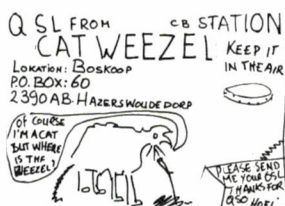 QSL FROM CB STATION
CATWEEZEL
KEEP IT
IN THE AIR
LOKATION: BOSKOOP
P.O. BOX: 60
2390 AB HAZERSWOUDE DORP
OF COURSE
I'M A CAT
BUT WHERE
IS THE
WEEZEL!
PLEASE SEND
ME YOUR QSL
THANKS FOR
QSO